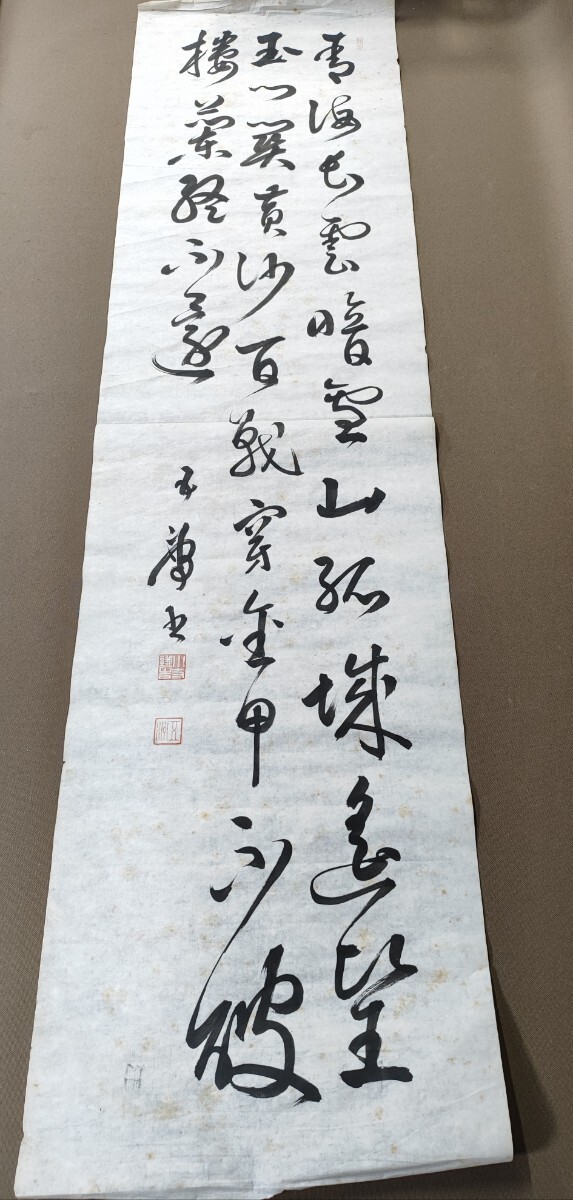 青海長雲暗雪山孤城遙望
玉門関黄沙百戦穿金甲不破
楼蘭終不還
書